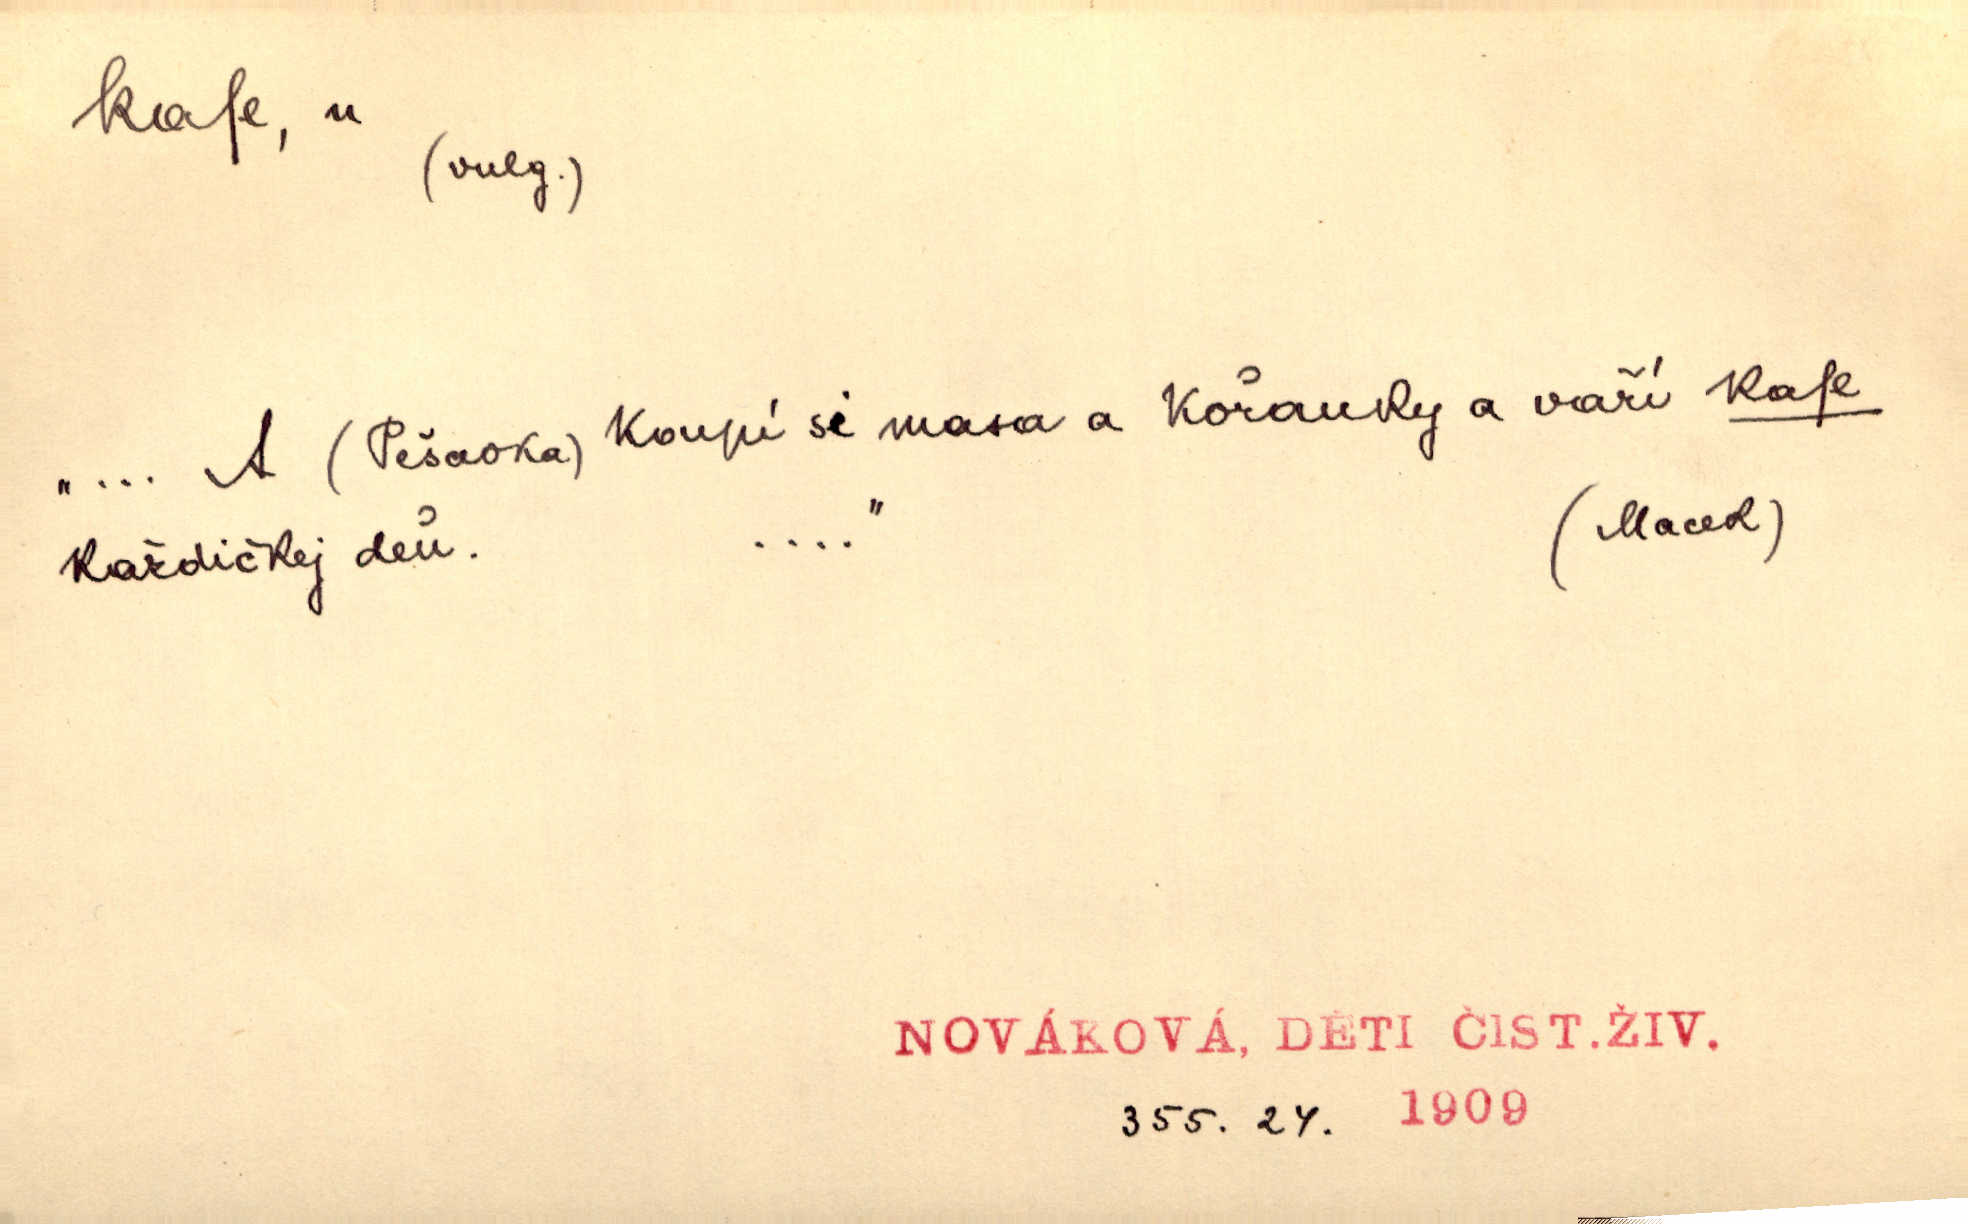 kafe, n
(vulg.)
".... A (Pešavka) koupí si masa a kořauky a vaří kafe
každičkej deň. ...."
(Macek)
NOVÁKOVÁ, DĚTI ČIST.ŽIV.
355. 24. 1909